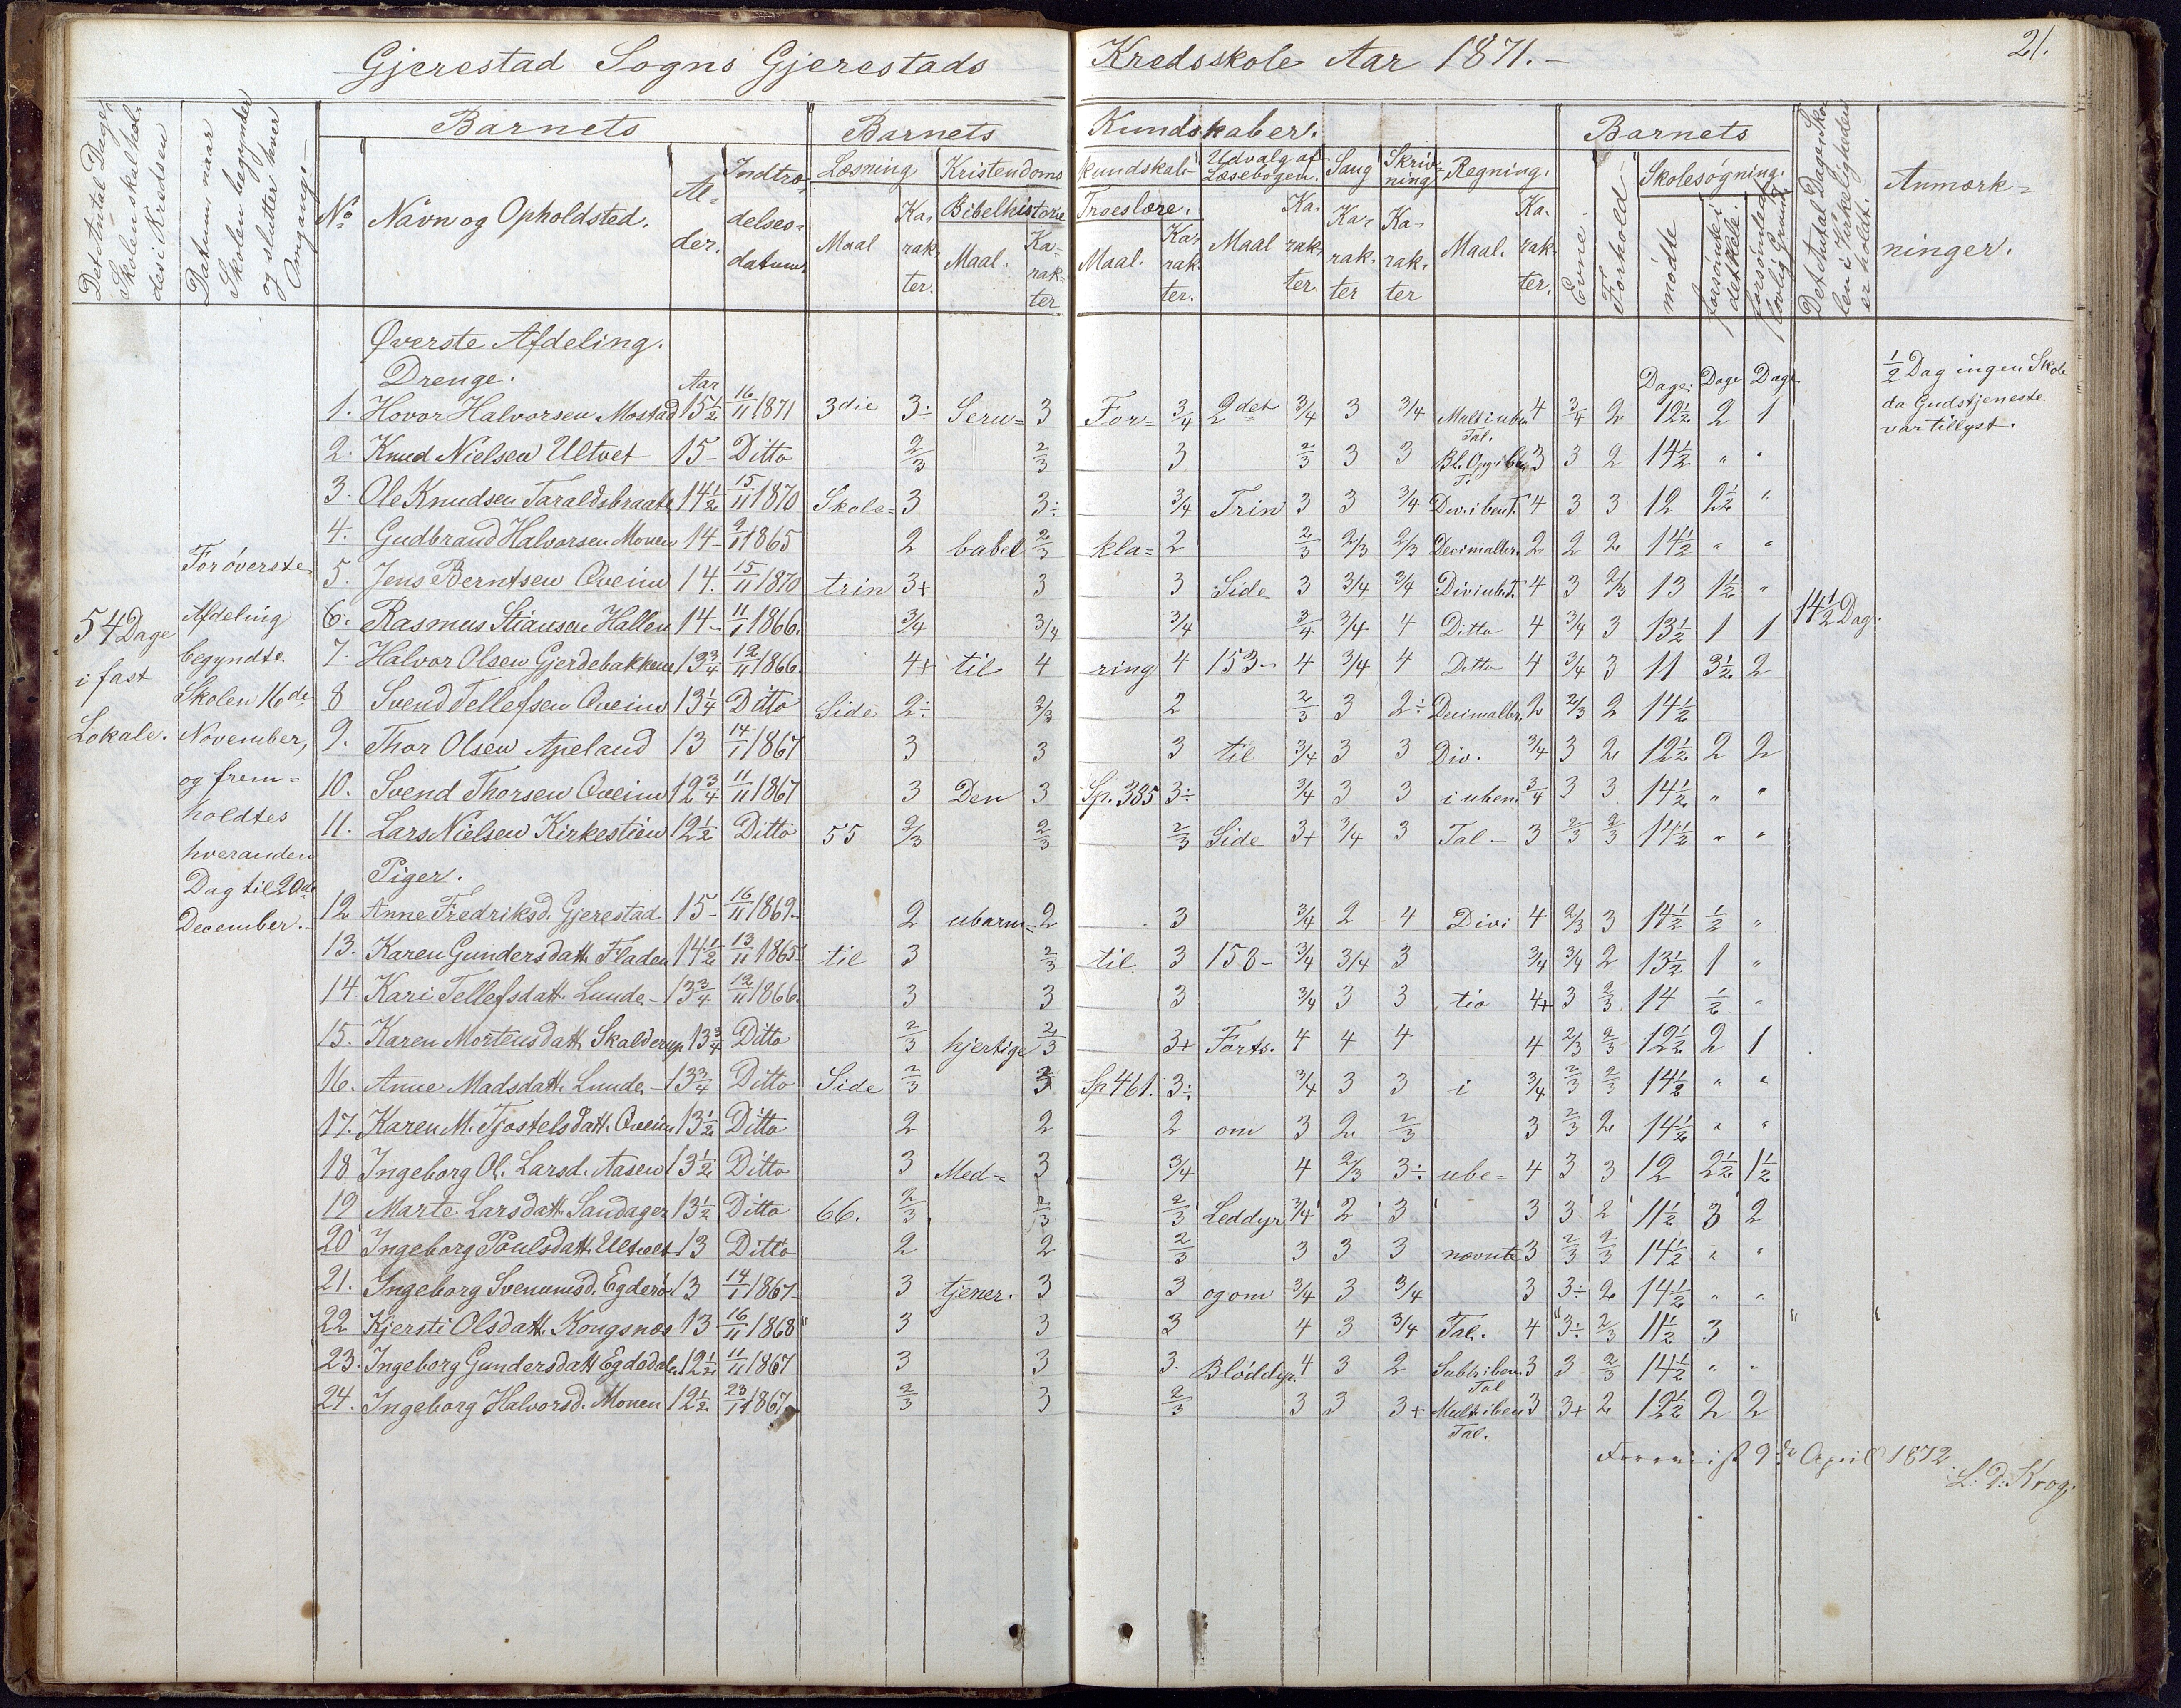 Gjerestad Sogns Gjerestads Kredsskole Aar 1871.-
21.
Det Antal Dage, Skolen skal holdes i Kredsen
Datum, naar Skolen begynder og slutter hver Omgang.-
Barnets
No
Navn og Opholdsted.
Alder.
Indtrædelsesdatum
Barnets Kundskaber.
Læsning
Maal
Karakter.
Kristendomskundskab
Bibelhistorie
Maal.
Karakter
Troeslære.
Maal.
Karakter.
Udvalg af Læsebogen.
Maal
Karakter
Sang
Karakter
Skrivning
Karakter
Regning.
Maal.
Karakter.
Barnets
Evne.
Forhold
Skolesøgning.
mødte
forsømte i det Hele.
forsømte af lovlig Grund
Det Antal Dage Skolen i Virkeligheden er holdt.
Anmærkninger.
54 Dage
i fast
Lokale.
For øverste
Afdeling
begyndte
Skolen 16de
November,
og frem=
holdtes
hveranden
Dag til 20de
December.-
Øverste Afdeling.
Drenge. Aar Dage. Dage Dage
1. Hovor Halvorsen Mostad 15½ 16/11 1871 3die 3÷ Seru= 3 For= 3/4 2det 3/4 3 3/4 Mult i ube. Tal. 4 3/4 2 12½ 2 1
2. Knud Nielsen Ultvet 15- Ditto 2/3 2/3 3 2/3 3 3 3 3 2 14½ " "
3. Ole Knudsen Taraldsbraate 14½ 15/11 1870 Skole= 3 3÷ 3/4 Trin 3 3 3/4 Div. i ben T. 4 3 3 12 2½ "
4. Gudbrand Halvorsen Monen 14- 9/11 1865 2 babel 2/3 kla= 2 2/3 2/3 2/3 Decimalbr. 2 2 2 14½ " "
5. Jens Berntsen Qveim 14. 15/11 1870 trin 3+ 3 3 Side 3 3/4 3/4 Div i ub T. 4 3 2/3 13 1½ "
6. Rasmus Stiansen Hallen 14- 11/1 1866. 3/4 3/4 3/4 3/4 3/4 4 Ditto 4 3/4 3 13½ 1 1 14½ Dag.
7. Halvor Olsen Gjerdebakkene 13¾ 12/11 1866. 4+ til 4 ring 4 153- 4 3/4 4 Ditto 4 3/4 3 11 3½ 2
8 Svend Tellefsen Qveim 13¼ Ditto Side 2÷ 2/3 2 2/3 3 2÷ Decimalbr. 2 2/3 2 14½
9. Thor Olsen Apeland 13 14/1 1867 3 3 3 til 3/4 3 3 Div. 3/4 3 2 12½ 2 2
10. Svend Thorsen Qveim 12¾ 11/11 1867 3 Den 3 Sp. 335 3÷ 3/4 3 3 i uben. 3/4 3 3 14½ " "
11. Lars Nielsen Kirkestien 12½ Ditto 55 2/3 2/3 2/3 Side 3+ 3/4 3 Tal- 3 2/3 2/3 14½ " "
Piger.
12 Anne Fredriksd. Gjerestad 15- 16/11 1869 2 ubarm= 2 3 3/4 2 4 Divi 4 2/3 3 14½ ½ "
13. Karen Gundersdatt. Fladen 14½ 13/11 1865 til 3 2/3 til 3 158- 3/4 3/4 3 3/4 3/4 2 13½ 1 "
14. Kari Tellefsdatt. Lunde- 13¾ 12/11 1866. 3 3 3 3/4 3 3 tio 4+ 3 2/3 14 ½ "
15. Karen Mortensdatt. Skalderup 13¾ Ditto 2/3 hjertige 2/3 3+ Forts. 4 4 4 4 2/3 2/3 12½ 2 1
16. Anne Madsdatt. Lunde- 13¾ Ditto Side 2/3 3 Sp 461. 3÷ 3/4 3 3 i 3/4 2/3 2/3 14½ " "
17. Karen M. Tjostelsdatt. Qveim 13½ Ditto 2 2 2 om 3 2 2/3 3 2/3 2 14½ " "
18 Ingeborg Ol. Larsd. Aasen 13½ Ditto 3 Med= 3 3/4 4 2/3 3÷ ube= 4 3 3 12 2½ 1½
19 Marte Larsdatt. Sandager 13½ Ditto 66. 2/3 2/3 2/3 Leddyr 3/4 2 3 3 3 2 11½ 3 2
20 Ingeborg Poulsdatt. Ultvet 13 Ditto 2 2 2/3 3 3 3 nævnte 3 2/3 2/3 14½ " "
21. Ingeborg Svenumsd. Egderø 13 14/1 1867 3 tjener. 3 3 og om 3/4 3 3/4 3 3÷ 2 14½ " "
22 Kjersti Olsdatt. Kongsnæs 13 16/11 1868 3 3 3 4 3 3/4 Tal. 4 3÷ 2/3 11½ 3
23. Ingeborg Gundersdatt Egdedalen 12½ 11/11 1867 3 3 3. Bløddyr. 4 3 2 Subt. i ben. Tal 3 3 2/3 14½ " "
24. Ingeborg Halvorsd. Monen 12½ 23/11 1867 2/3 3 2/3 3 3 3+ Mult i ben Tal. 3 3+ 2 12½ 2 2
½ Dag ingen Skole
da Gudstjeneste
var tillyst.
9de April 1872.
L: D: Krog.